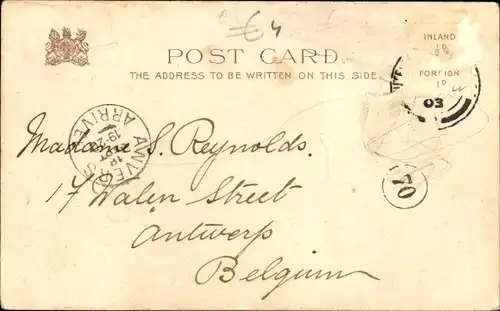 € 4
POST CARD.
THE ADDRESS TO BE WRITTEN ON THIS SIDE.
INLAND
½D
FOREIGN
1D
03
ANVERS
ARRIVÉE
70
Madame S. Reynolds.
17 Walen Street
Antwerp
Belgium